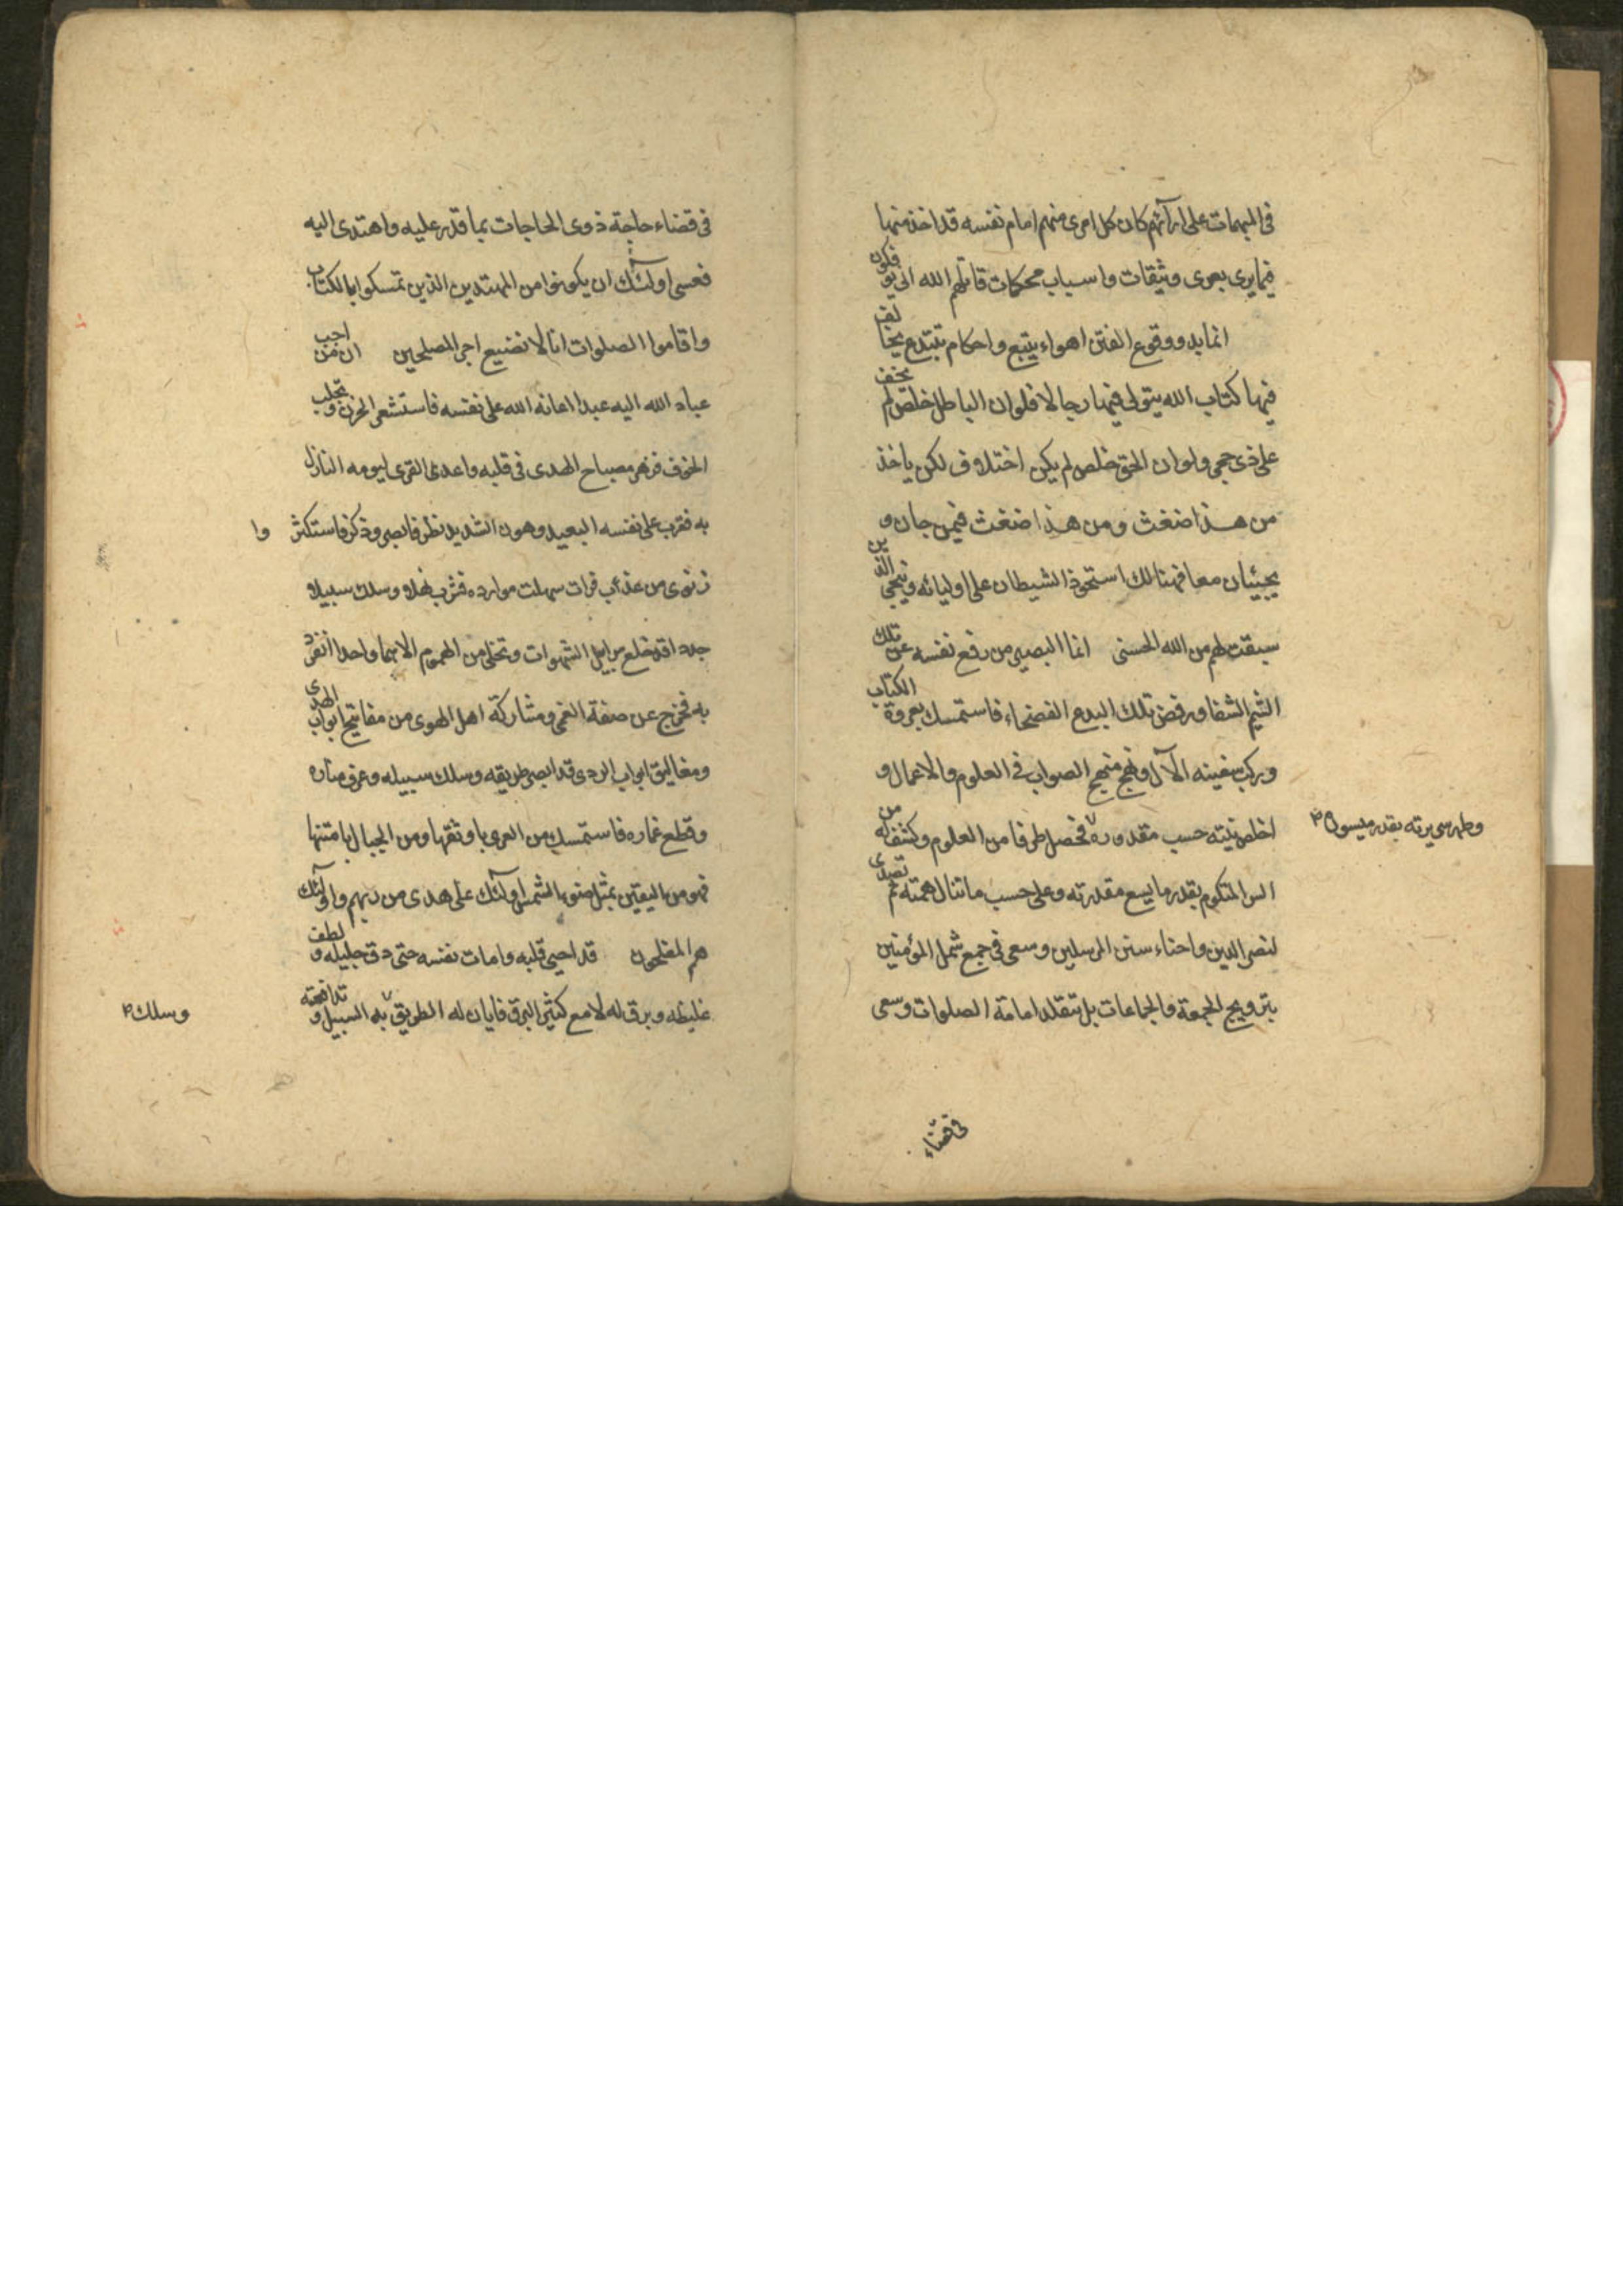 فى المبهمات على ارآئهم كان كل امرئ منهم امام نفسه قد اخذ منها
فيما يرى بعرى وثيقات واسباب محكمات قاتلهم الله انى يؤفكون
انما بدو وقوع الفتن اهواء يتبع واحكام تبتدع يخالف
فيها كتاب الله يتولى فيها رجال رجالا فلو ان الباطل خلص لم يخف
على ذى حجى ولو ان الحق خلص لم يكن اختلاف لكن ياخذ
من هذا ضغث ومن هذا ضغث فيمزجان و
يجيئان معا فهنالك استحوذ الشيطان على اوليائه ونجى الذين
سبقت لهم من الله الحسنى انما البصير من رفع نفسه عن تلك
الشيم الشفا ورفض تلك البدع الفضحاء فاستمسك بعروة الكتاب
وركب سفينه الآل ونهج منهج الصواب فى العلوم والاعمال و
اخلص نيته حسب مقدوره فحصل طرفا من العلوم وكشف له من
وطهر سريرته بقدر ميسوره
السر المكتوم بقدر ما يسع مقدرته وعلى حسب ما تنال همته ثم تصدى
لنصر الدين واحناء سنن المرسلين وسعى فى جمع شمل المؤمنين
بترويج الجمعة والجماعات بل بتقلد امامة الصلوات وسعى
فى قضاء
فى قضاء حاجة ذوى الحاجات بما قدر عليه واهتدى اليه
فعسى اولئك ان يكونوا من المهتدين الذين تمسكوا بالكتاب
واقاموا الصلوات انا لا نضيع اجر المصلحين ان من احب
عباد الله اليه عبدا اعانه الله على نفسه فاستشعر الحزن وتجلبب
الخوف فزهر مصباح الهدى فى قلبه واعد القرى ليومه النازل
به فقرب على نفسه البعيد وهون الشديد نظر فابصر وذكر فاستكثر وا
رتوى من عذب فرات سهلت موارده فشرب نهلا وسلك سبيلا
جددا قد خلع سرابيل الشهوات وتخلى من الهموم الا هما واحدا انفرد
به فخرج عن صفة العمى ومشاركة اهل الهوى من مفاتيح ابواب الهدى
ومغاليق ابواب الردى قد ابصر طريقه وسلك سبيله وعرف مناره
وقطع غماره فاستمسك من العرى باوثقها ومن الحبال بامتنها
فهو من اليقين بمثل ضوء الشمس اولئك على هدى من ربهم واولئك
هم المفلحون قد احيى قلبه وامات نفسه حتى دق جليله ولطف
غليظه وبرق له لامع كثير البرق فابان له الطريق به السبيل وتدافعته
وسلك